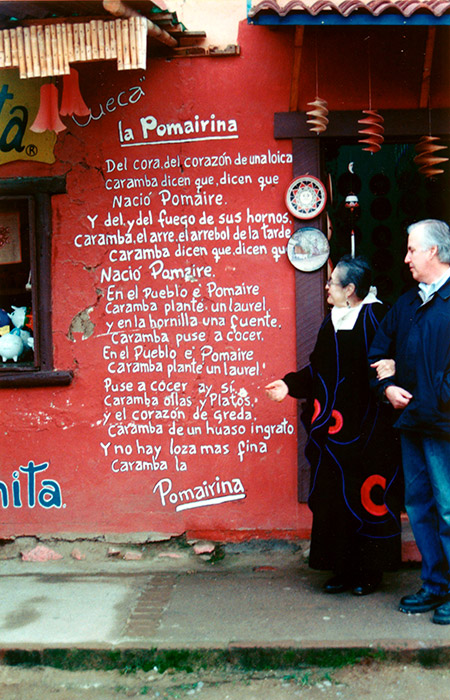 ta
®
"Cueca"
la Pomairina
Del cora, del corazón de una loica
caramba dicen que, dicen que
Nació Pomaire.
Y del, y del fuego de sus hornos,
caramba, el arre, el arrebol de la tarde
caramba dicen que, dicen que
Nació Pomaire.
En el Pueblo e' Pomaire
Caramba plante un laurel
y en la hornilla una fuente.
Caramba puse a cocer.
En el Pueblo e' Pomaire
Caramba plante un laurel
Puse a cocer ay sí
Caramba ollas y Platos.
y el corazón de Greda,
Caramba de un huaso ingrato
Y no hay loza mas fina
Caramba la
Pomairina
nita.